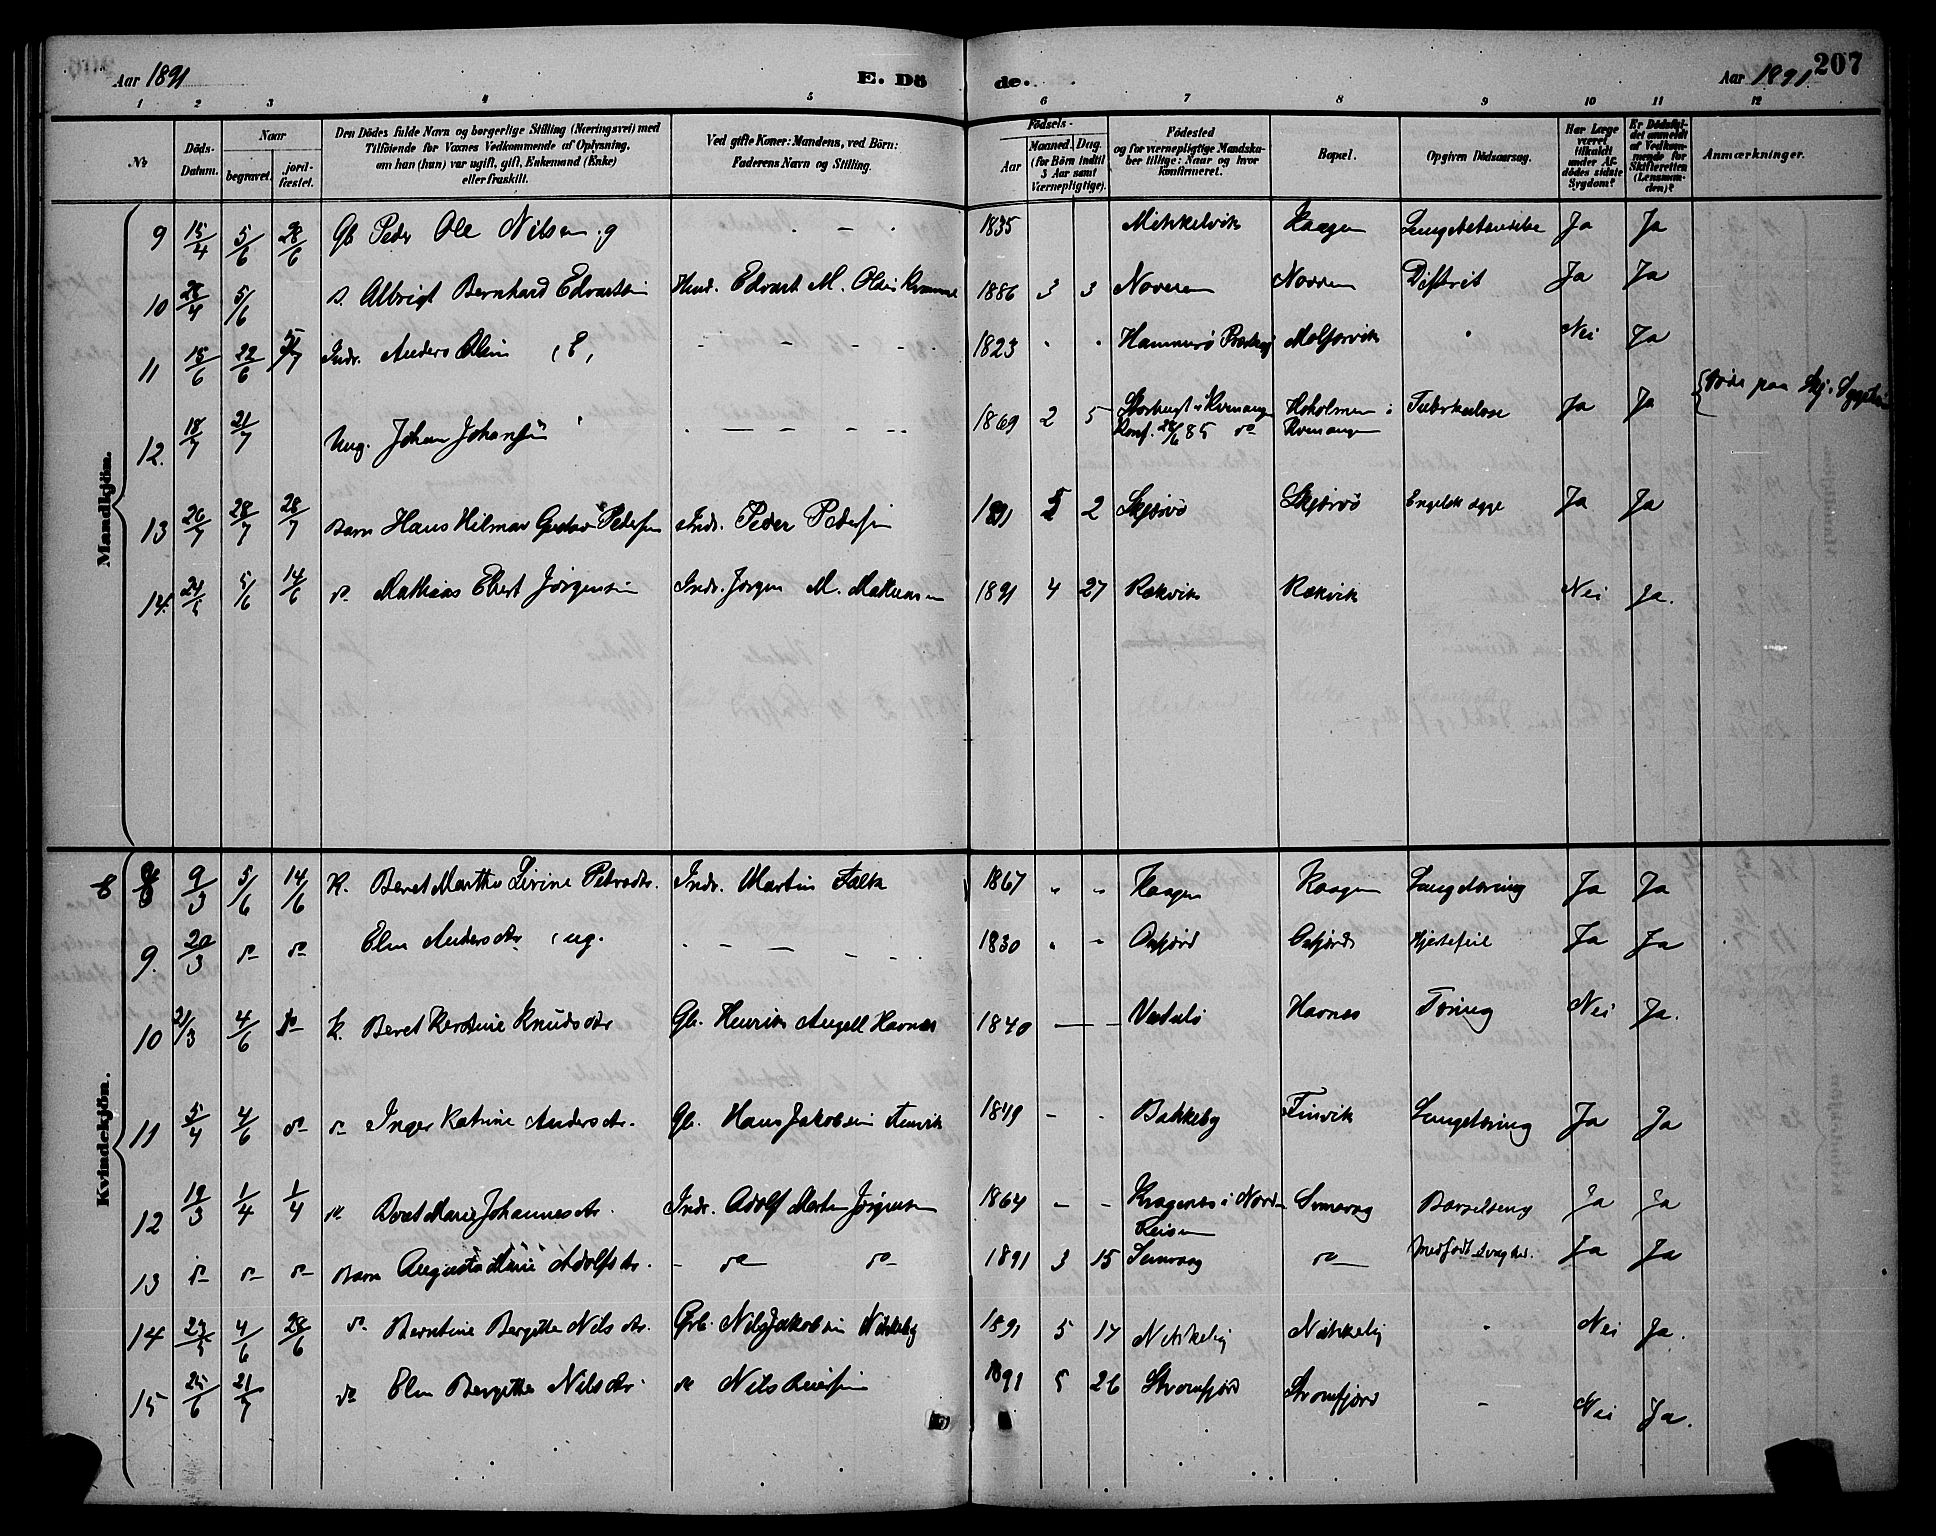 207
Aar 1891 E. Dö de. Aar 1891
1 2 3 4 5 6 7 8 9 10 11 12
№ Döds-Datum. Naar begravet. jordfæstet. Den Dödes fulde Navn og borgerlige Stilling (Næringsvei) med Tilföiende for Voxnes Vedkommende af Oplysning, om han (hun) var ugift, gift, Enkemand (Enke) eller fraskilt. Ved gifte Koner: Mandens, ved Börn: Faderens Navn og Stilling. Födsels- Aar Maaned. Dag. (for Börn indtil 3 Aar samt Værnepligtige). Födested og for værnepligtige Mandskaber tillige: Naar og hvor konfirmeret. Bopæl. Opgiven Dödsaarsag. Har Læge været tilkaldt under Afdödes sidste Sygdom? Er Dödsfaldet anmeldt af Vedkommende for Skifteretten (Lensmanden)? Anmærkninger.
Mandkjön.
9 15/4 5/6 28/6 Gb Peder Ole Nilsen g - 1835 Mikkelvik Kaagen Ja Ja
10 28/4 5/6 s. Albrigt Bernhard Edvartsen Edvart M. Olsen 1886 3 3 Noveren Difterit Ja Ja
11 15/6 22/6 Indr. Anders Olsen (E, - - - - 1823 Hammerö Molforvik Nei Ja
12. 18/7 21/7 Ung. Johan Johansen - - - - 1869 2 5 Storbugt i Kvenangen Konf. 28/6 85 do Hokolmen i Kvenangen Tuberkulose Ja Ja Döde paa Skj. Sygehus
13 26/7 28/7 28/7 Barn Hans Hilmar Gustav Pedersen Indr. Peder Pedersen 1891 5 2 Skjervö Skjervö Engelsk syge Ja Ja
14. 5/6 14/6 do Mathias Ebert Jörgensen Indr. Jörgen M. 1891 4 27 Rækvik Rækvik Nei Ja.
Kvindekjön.
8 9/3 5/6 14/6 K. Beret Marthe Livine Pedersdtr. Indr. Martin Falk 1867 " " Kaagen Kaagen Lungetæring Ja Ja
9. 20/3 do do Elen Andersdtr. (ug. - - - 1830 " - Oxfjord Oxfjord Hjertefeil Ja Ja
10 21/3 4/6 do k. Beret Kerstine Knudsdtr Gb. Henrik Angell Havnes 1840 - - Havnes Tæring Nei Ja.
11 5/4 4/6 do do Inger Katrine Andersdtr. Gb. Hans Jakobsen Finvik 1849 - - Bakkeby Finvik Lungetæring Ja Ja
12 19/3 1/4 1/4 do Beret Marie Johannesdtr. Indr. Adolf Martin Jörgensen 1864 - - Kragenes i Nord-Reisen Barselseng Ja Ja
13 do do do Barn Augusta Marie Adolfsdtr. - do do 1891 3 15 do Medfödt svaghed. Ja Ja
14 4/6 28/6 do Berntine Bergitte Nilsdtr. Gb. Nils Jakobsen Nikkeby 1891 5 17 Nikkeby Nikkeby " Nei Ja.
15 25/6 21/7 do Elen Bergitte Nilsdtr do Nils 1891 5 26 Stromfjord Stromfjord - Nei Ja.